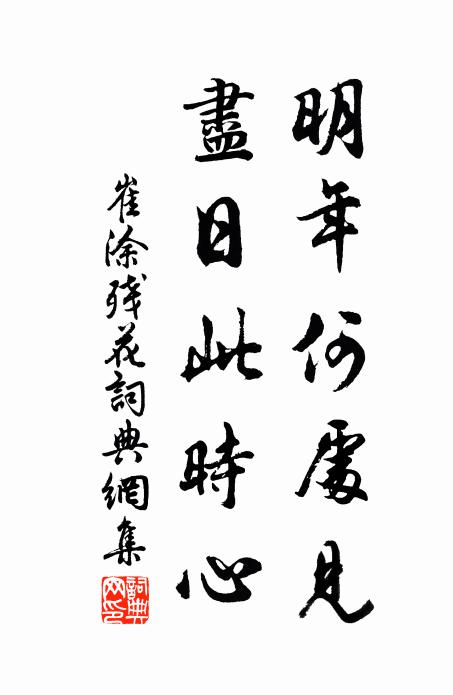 明年何處見
盡日此時心
崔涂殘花詞典網集
詞典網印